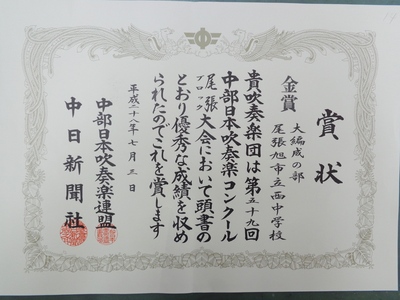 賞状
金賞
大編成の部
尾張旭市立西中学校
貴吹奏楽団は第五十九回
中部日本吹奏楽コンクール
尾張ブロック大会において頭書の
とおり優秀な成績を収め
られたのでこれを賞します
平成二十八年七月三日
中部日本吹奏楽連盟
中日新聞社